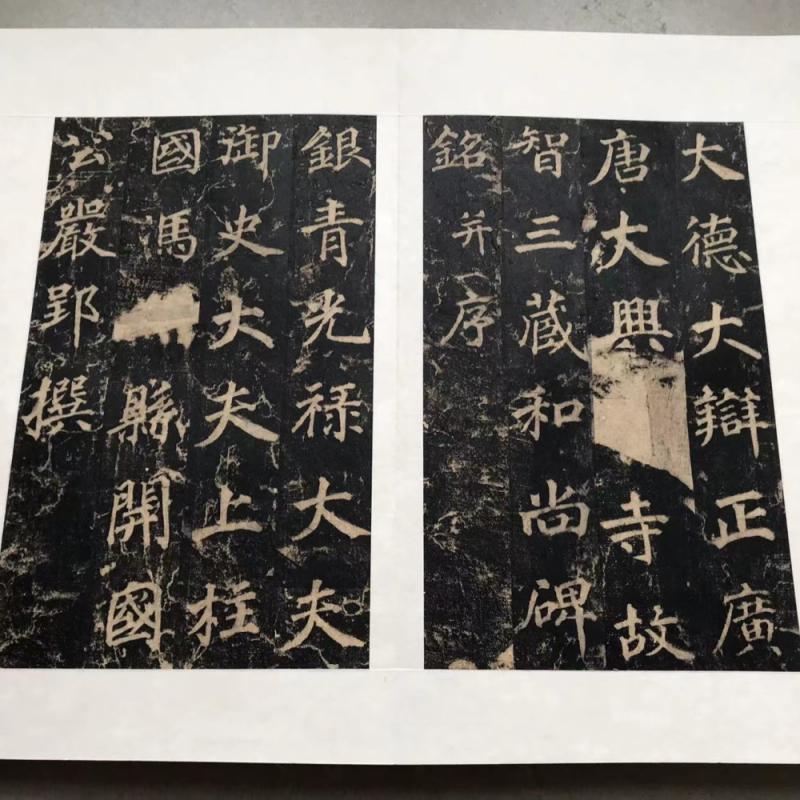 大德大辯正廣
唐大興寺故
智三藏和尚碑
銘并序
銀青光祿大夫
御史大夫上柱
國馮縣開國
公嚴郢撰